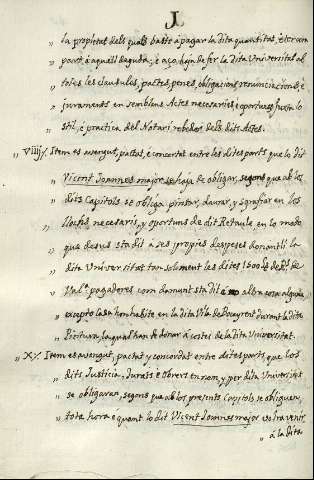 L
„ la propietat dels quals baste à pagar la dita quantitat, è tercera
„ part, à aquell deguda; è açò haja de fer la dita Universitat ab
„ totes les clausules, pactes, penes, obligacions, renunciacions, è
„ juraments en semblans Actes necesaries è oportunes, juxta lo
„ stil, è practica del Notari rebedor dels dits Actes.
„ Viiij. Item es avengut, pactat, è concertat entre les dites parts que lo dit
„ Vicent Joannes major se haja de obligar, segons que ab los
„ dits Capitols se obliga pintar, daurar, y sgrafiar en los
„ llochs necesaris, y oportuns de dit Retaule en lo modo
„ que desus sta dit à ses propies despeses donantli la
„ dita Universitat tan solament les dites
„ Val.ª pagadores com damunt sta dit è no altra cosa alguna
„ excepto casa hon habite en la dita Vila de Bocayrent durant la dita
„ Pictura, la qual han de donar à costes de la dita Universitat.
„ X. Item es avengut, pactat y concordat entre dites parts que los
„ dits Justicia, Jurats, è obrers en nom, y per dita Universitat
„ se obligaran, segons que ab los presents Capitols se obliguen,
„ tota hora è quant lo dit Vicent Joannes major voltra venir
„ à la dita